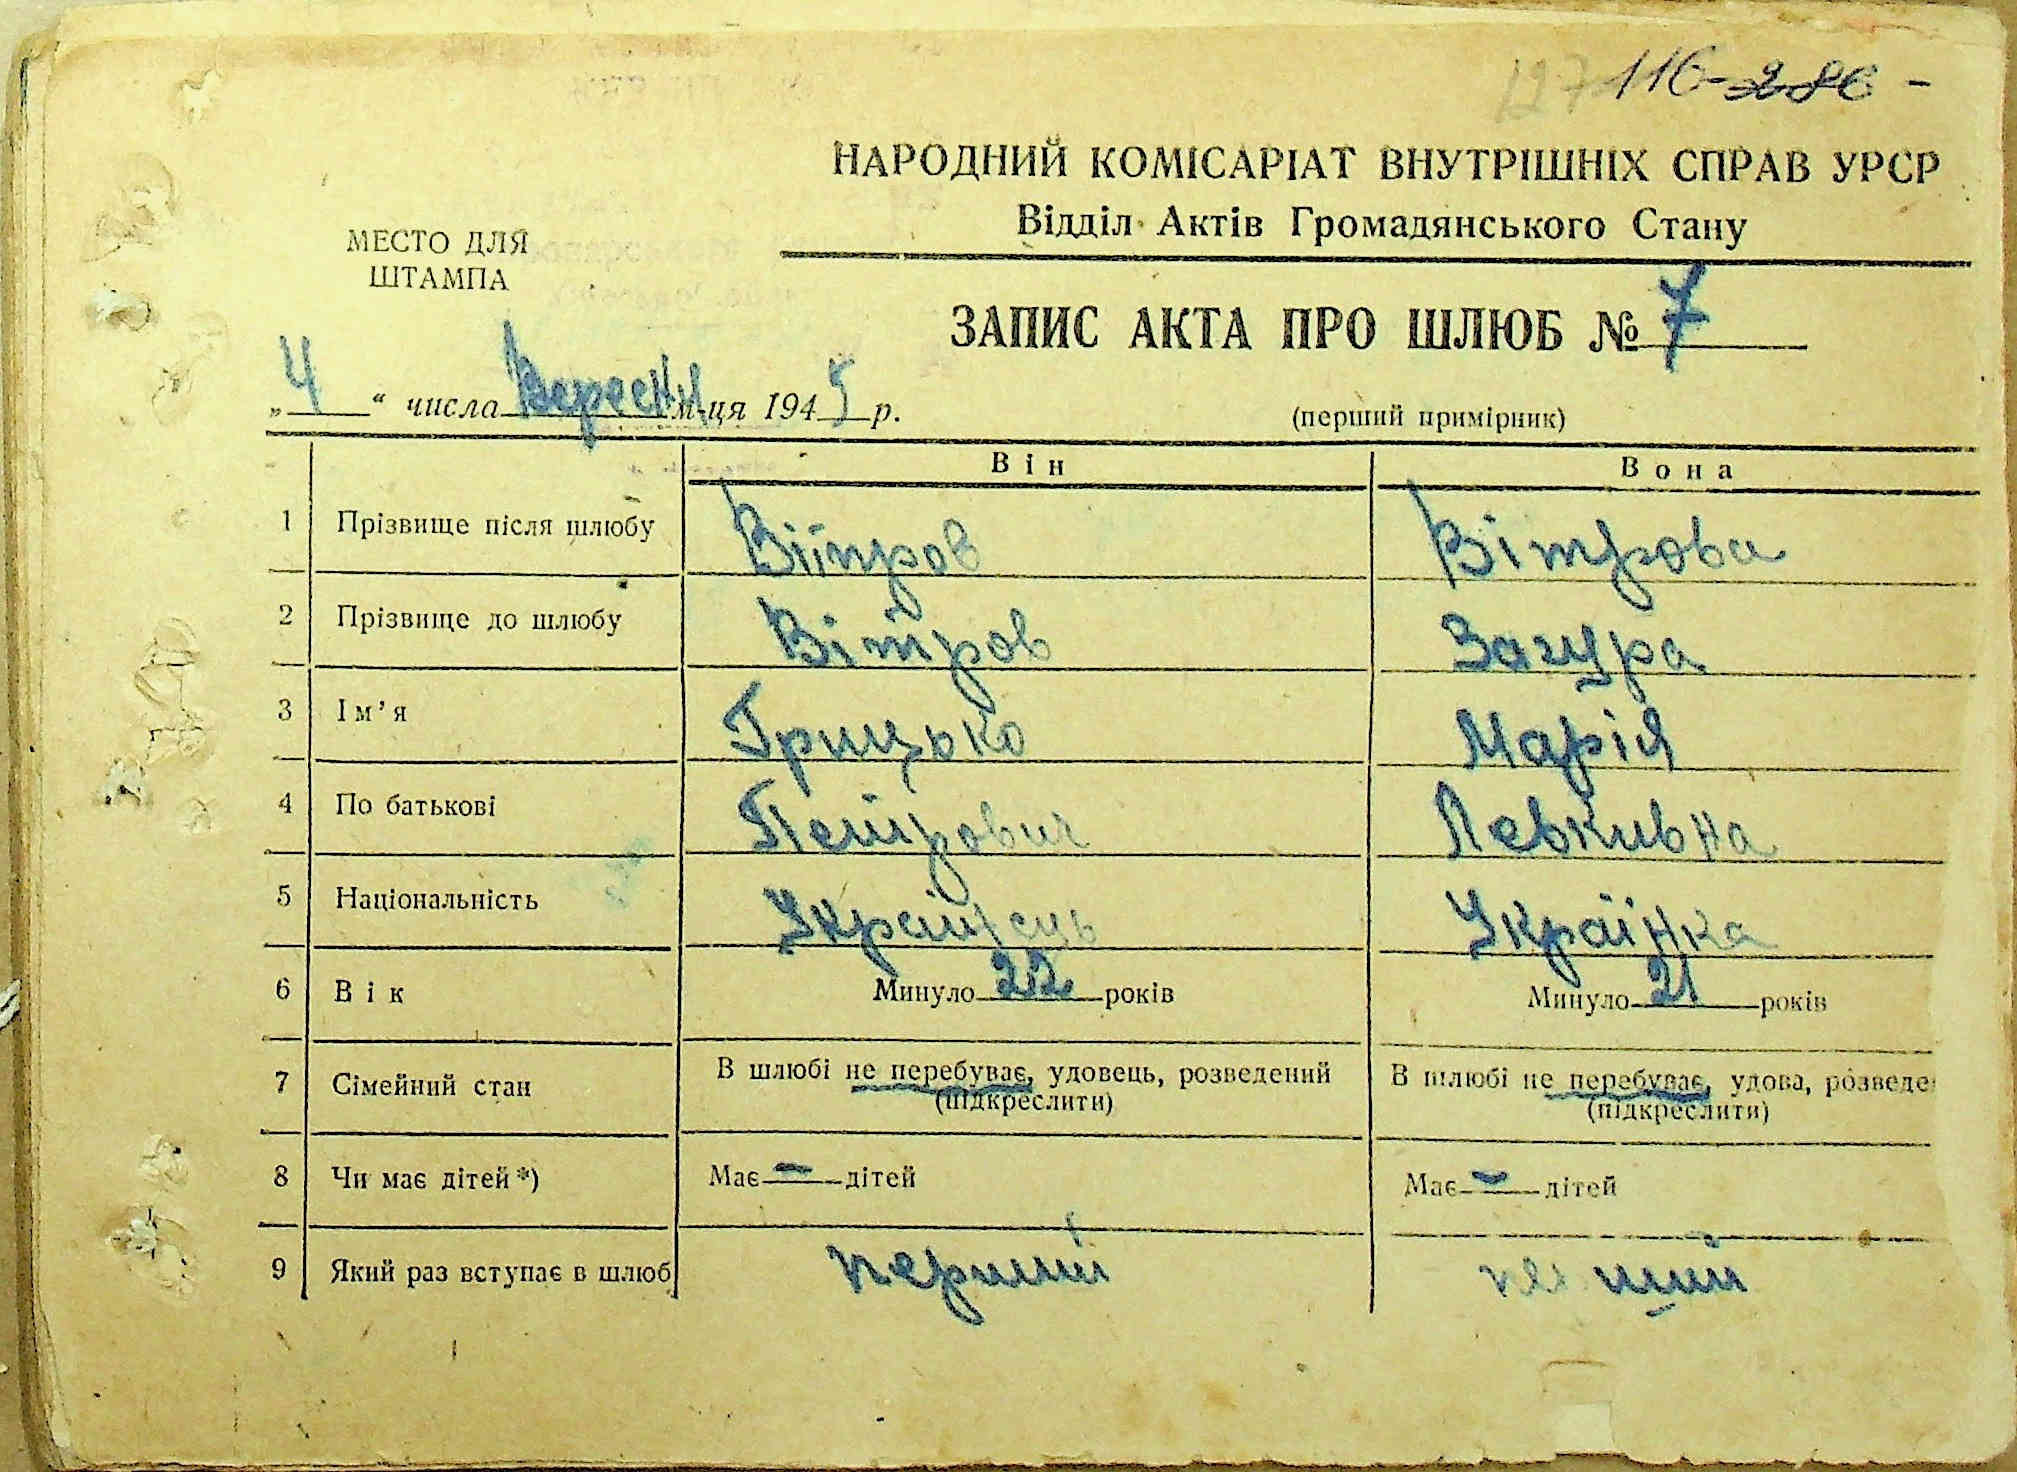 127 116 - 286 -
НАРОДНИЙ КОМІСАРІАТ ВНУТРІШНІХ СПРАВ УРСР
Відділ Актів Громадянського Стану
МЕСТО ДЛЯ
ШТАМПА
ЗАПИС АКТА ПРО ШЛЮБ № 7
„ 4 “ числа Вересня м-ця 1945 р.
(перший примірник)
Він Вона
1 Прізвище після шлюбу Вітров Вітрова
2 Прізвище до шлюбу Вітров Загура
3 Ім’я Грицько Марія
4 По батькові Петрович Левкивна
5 Національність Українець Українка
6 Вік Минуло 22 років Минуло 21 років
7 Сімейний стан В шлюбі не перебуває, удовець, розведений В шлюбі не перебуває, удова, розведе
(підкреслити) (підкреслити)
8 Чи має дітей*) Має - дітей Має - дітей
9 Який раз вступає в шлюб перший перший